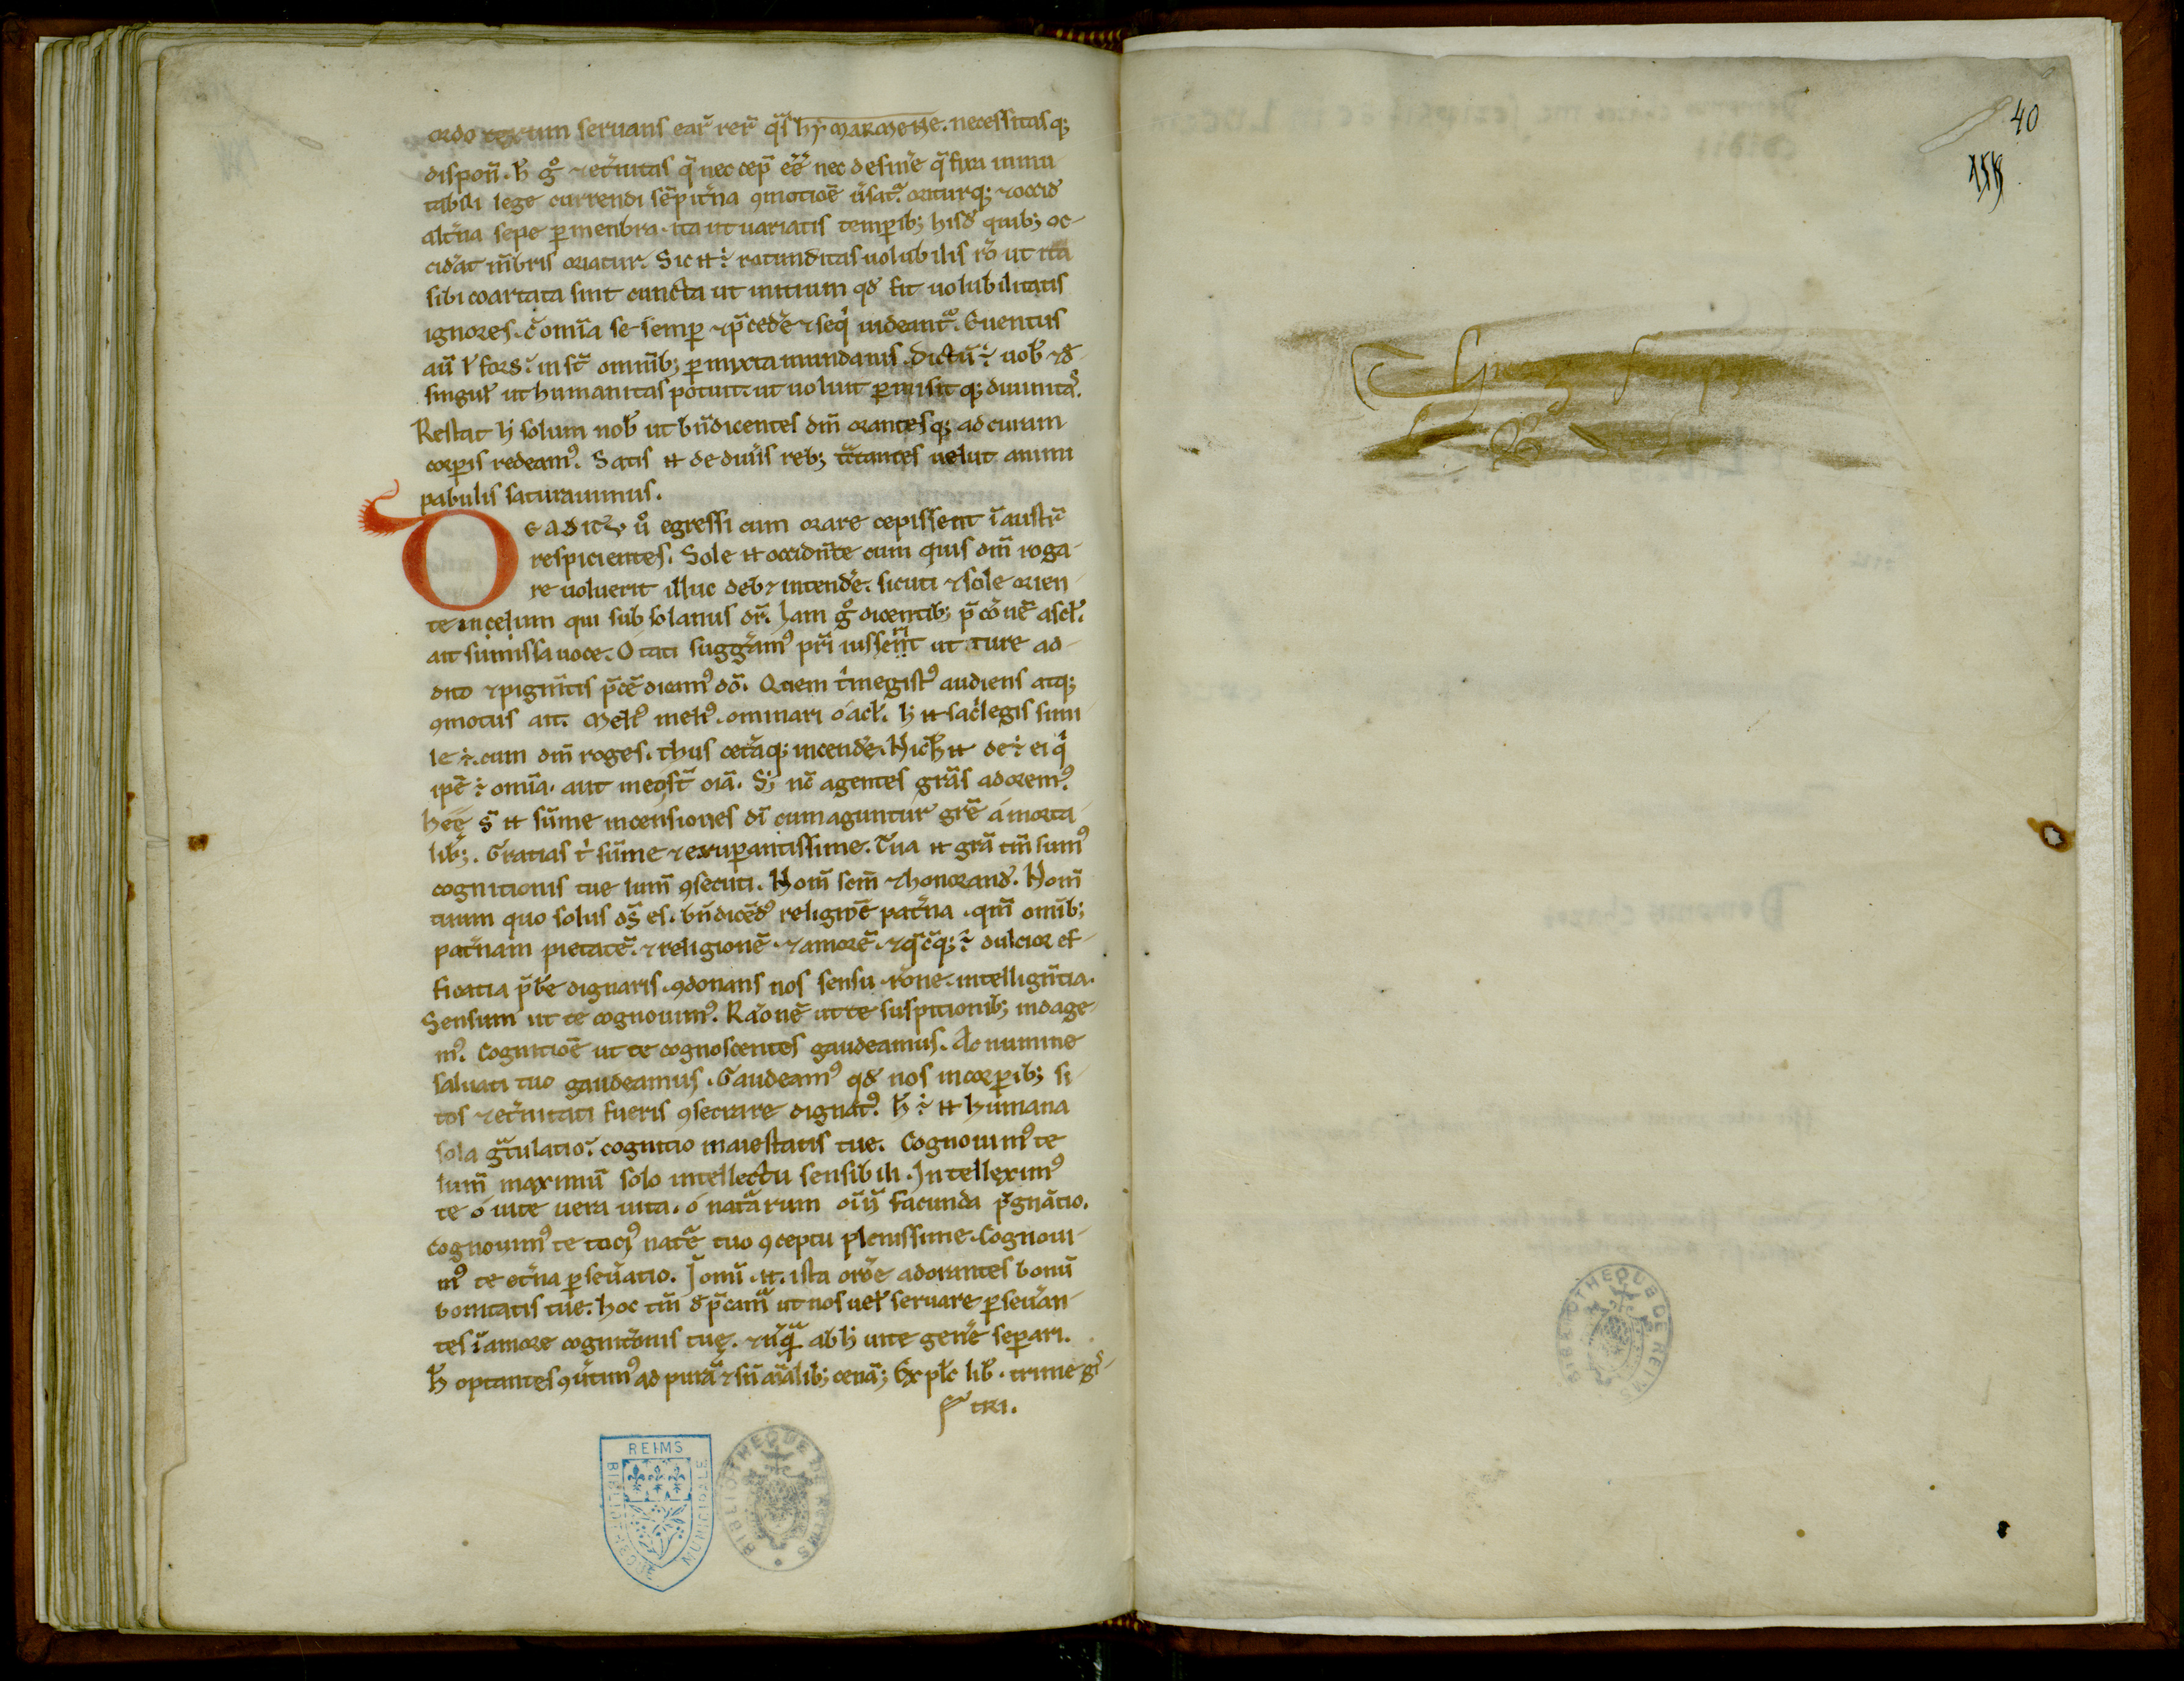 ordo rerum seruans eaꝝ rerū q̄s hymarmene. necessitasq;
dispoñ. h̄ g° ⁊ et̄nitas q̄ nec cep̄ eē nec desinē q̄ fixa inmu-
tabili lege currendi sēpit̄na ꝯmotiōe ūsat᷑. oriturq; ⁊ occid̄
alt̄na sepe ꝑ menbra. ita ut uariatis temꝑib; hisd̄ quib; oc-
cid̄at m̄bris oriatur. Sic ⁊t ÷ rotunditas uolubilis rō ut ita
sibi coartata sint cuncta ut initium qd̄ sit uolubilitatis
ignores. c̄ omīa se semꝑ ⁊ p̄cedē ⁊ seq̇ uideant᷑. Euentus
aū ł fors ÷ insť omnib; ꝑmixta mundanis. Dictū ÷ uob̄ ⁊ d̄
singuł ut humanitas potuit. ut uoluit ꝑmisitq; diuinitas.
Restat h̄ solum nob̄ ut bn̄dicentes dm̄ orantesq; ad curam
corꝑis redeamꝰ. Satis ⁊t de diuīs reb; tr̄tantes uelut animi
pabulis saturauimus.
De adito ů egressi cum orare cepissent ī austrū
respicientes. Sole ⁊t occidn̄te cum quis dm̄ roga-
re uoluerit illuc deb⁊ intendē. sicuti ⁊ sole orien-
te in celum qui subsolanus dr̄. Iam g° dicentib; p̄cōnē ascł.
ait sūmissa uoce. O tati suggāmꝰ pr̄i iussent ut ture ad-
dito ⁊ pigm̄tis p̄cē dicamꝰ dō. Quem tͥmegistꝰ audiens atq;
ꝯmotus ait. Melꝰ melꝰ. ominari ó acł. h̄ ⁊t sac̄legis simi-
le ÷. cum dm̄ roges. thus cet̄aq; incendē. Nich̄ ⁊t de÷ ei q̇
ipē ÷ omīa. aut in eo sť oīa. S; nc̄ agentes grās adoremꝰ.
hee s̄ ⁊t sūme incensiones dī cum aguntur gr̄e á morta-
lib;. Gratias tͥ sūme ⁊ exuꝑantissime. Tua ⁊t grā tm̄ sumꝰ
cognitionis tue lum̄ ꝯsecuti. Nom̄ scm̄ ⁊ honorand̄. Nom̄
tuum quo solus ds̄ es. bn̄dicēdꝰ religiōē pat̄na. qm̄ omīb;
pat̄nam pietatē. ⁊ religionē. ⁊ amorē. ⁊ q̄cq; ÷ dulcior ef-
ficatia p̄bē dignaris. ꝯdonans nos sensu. rōne. intellign̄tia.
Sensum ut te cognouimꝰ. Rāonē ut te suspitionib; indage-
mꝰ. Cognitiōē ut te cognoscentes gaudeamus. Ac numine
saluati tuo gaudeamus. Gaudeamꝰ qd̄ nos in corꝑib; si-
tos ⁊ et̄nitati fueris ꝯsecrare dignatꝰ. h̄ ÷ ⁊t humana
sola gr̄tulatio. cognitio maiestatis tue. Cognouimꝰ te
lum̄ maximū solo intellectu sensibili. Intelleximꝰ
te ó uite uera uita. ó nat̄arum oīū facunda p̄gnātio.
Cognouimꝰ te tociꝰ nat̄e tuo ꝯceptu plenissime. Cognoui-
mꝰ te et̄na ꝑseūatio. I omī. ⁊t. ista orōe adorantes bonū
bonitatis tue. hoc tm̄ d̄p̄camur ut nos uel' seruare ꝑseūan-
tes ī amore cognitōnis tuę. ⁊ nūq̄ ab h̄ uite genē seꝑari.
h̄ optantes ꝯūtimꝰ ad purā ⁊ sn̄ aīalib; cenā; Explc̄ lib̄. trimegi-
stri.
REIMS
BIBLIOTHEQUE
MUNICIPALE
BIBLIOTHEQUE DE REIMS
40
BIBLIOTHEQUE DE REIMS